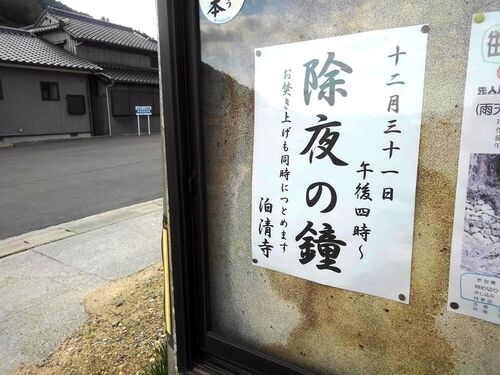 十二月三十一日
午後四時〜
除夜の鐘
お焚き上げも同時につとめます
泊清寺
本
う
世
先人
(雨天
参加費
締め切り